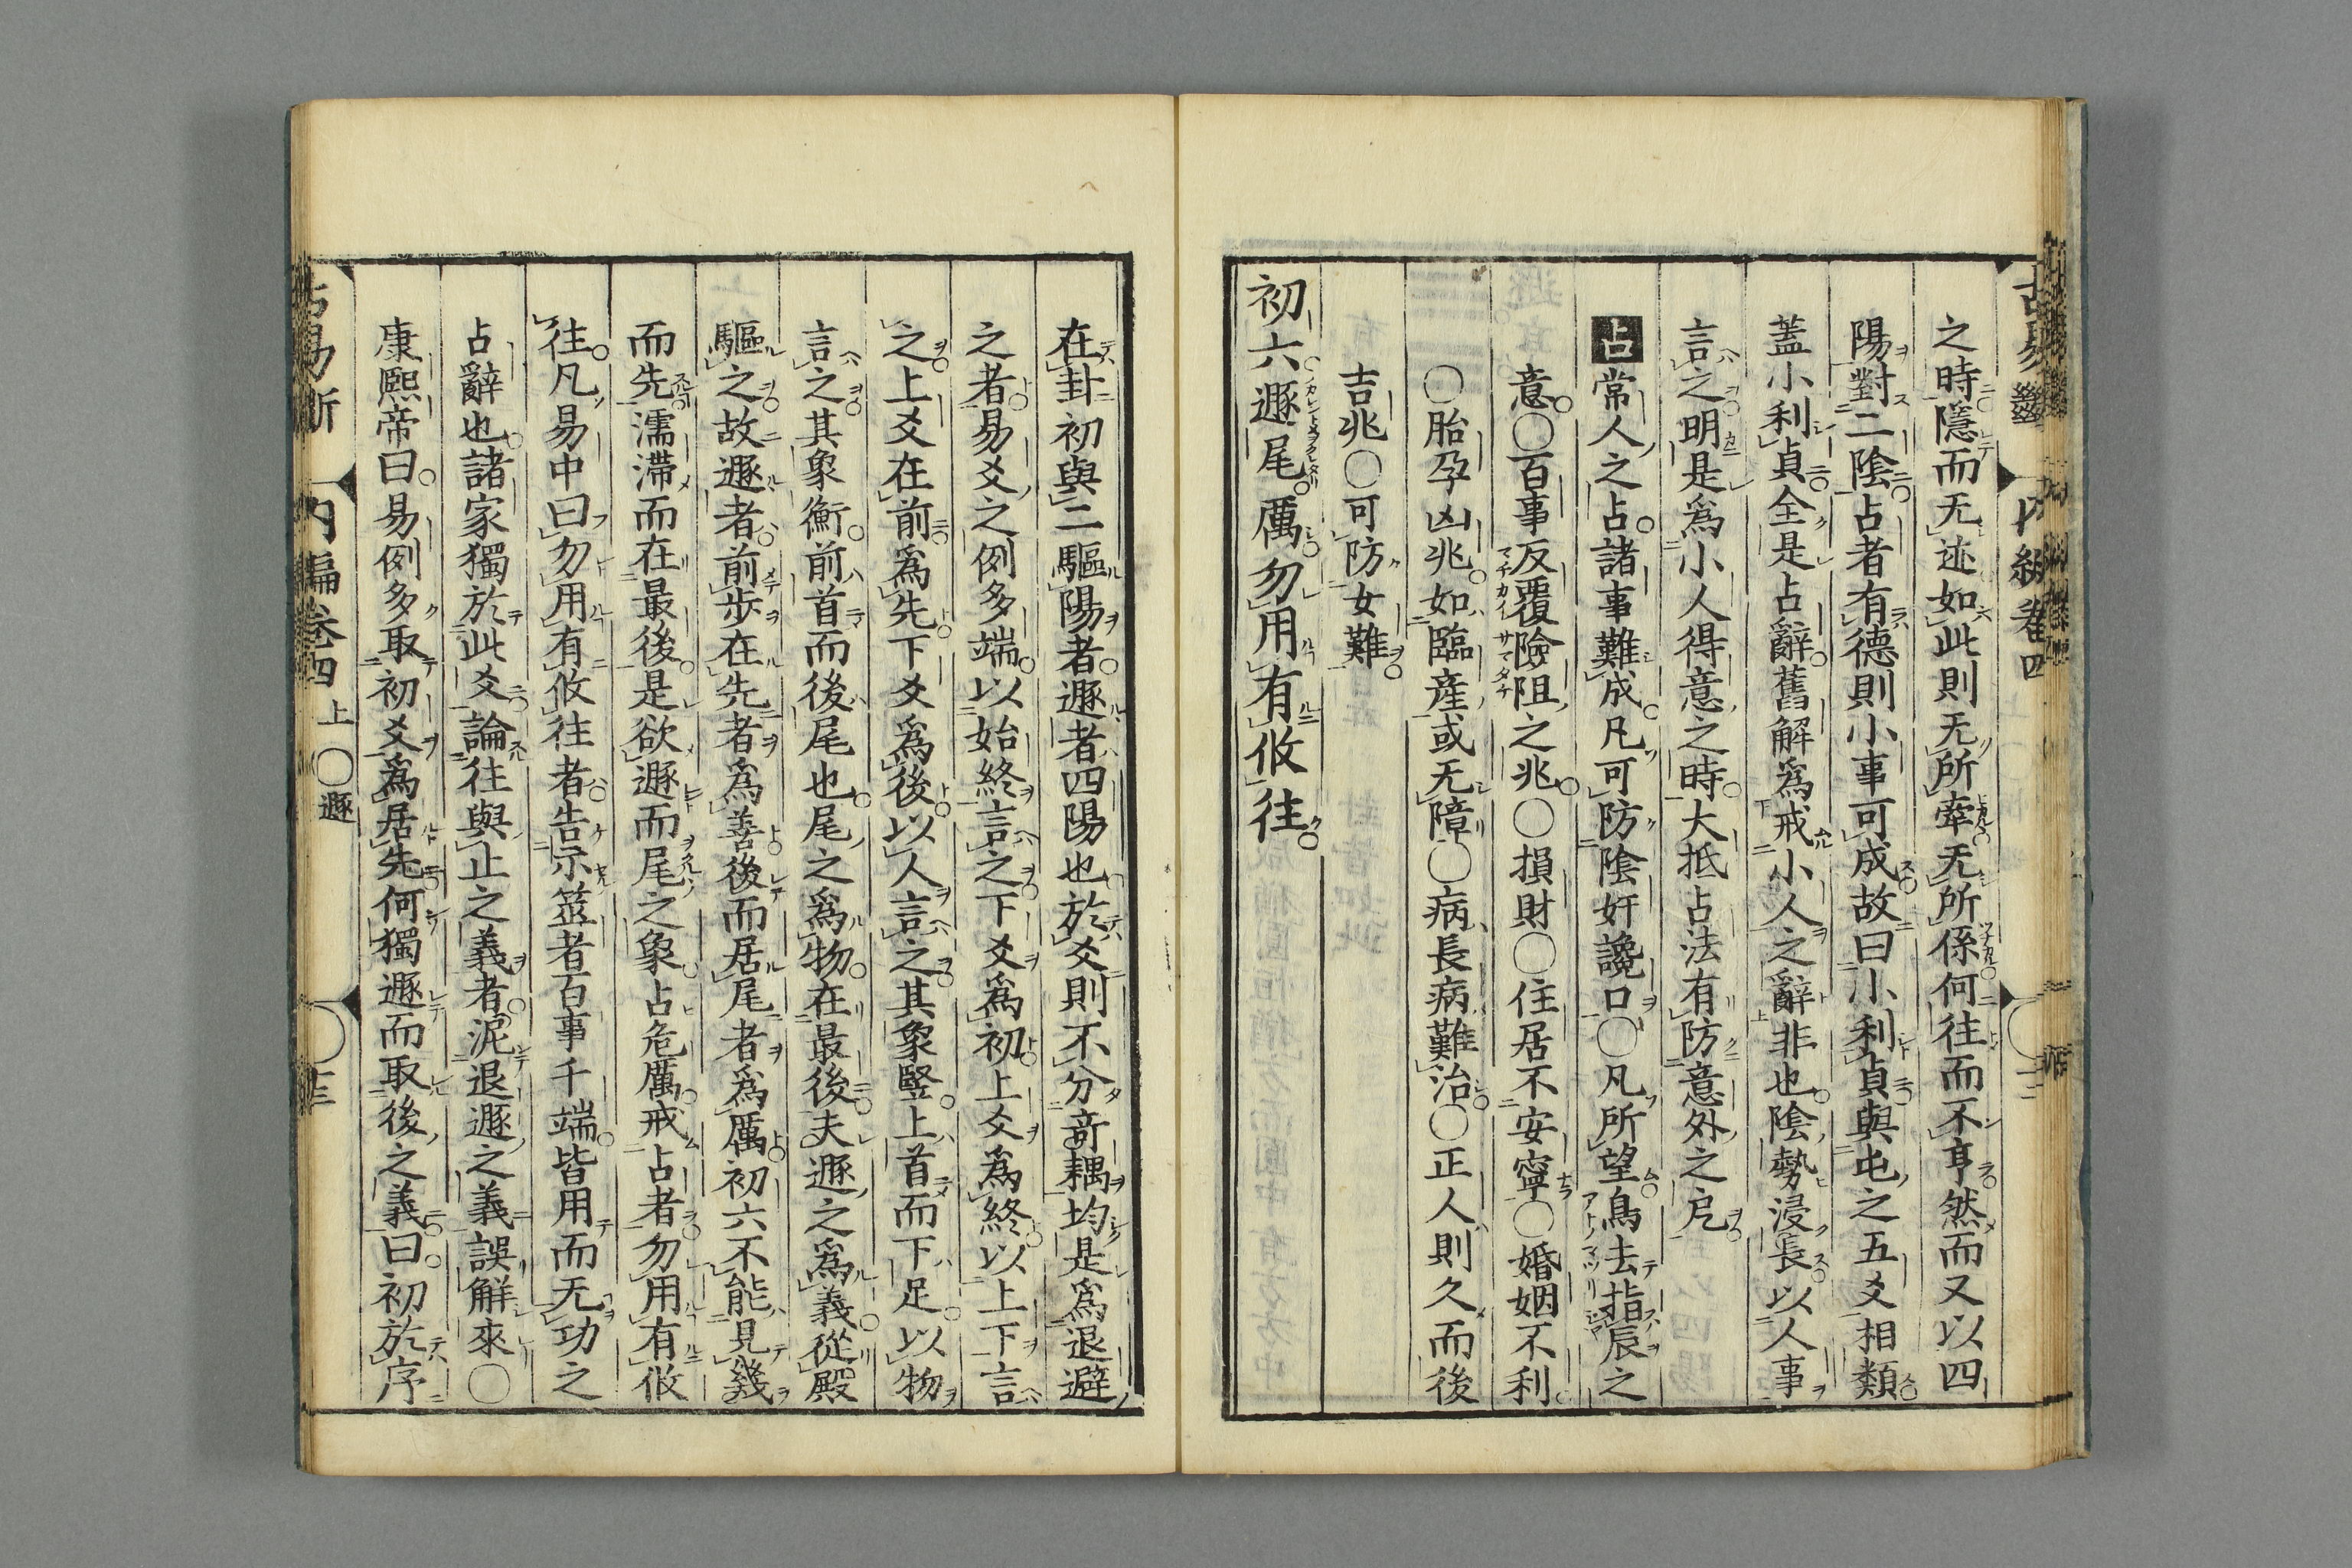 之時隱而无迹如此則无所牽无所係何往而不亨然而又以四
陽對二陰占者有德則小事可成故曰小利貞與屯之五爻相類
蓋小利貞全是占辭舊解爲戒小人之辭非也陰勢浸長以人事
言之明是爲小人得意之時大抵占法有防意外之戹
占常人之占諸事難成凡可防陰奸讒口〇凡所望鳥去指辰之
意〇百事反覆險阻之兆〇損財〇住居不安寧〇婚姻不利
〇胎孕凶兆如臨產或无障〇病長病難治〇正人則久而後
吉兆〇可防女難
初六遯尾厲勿用有攸往
在卦初與二驅陽者遯者四陽也於爻則不分奇耦均是爲退避
之者易爻之例多端以始終言之下爻爲初上爻爲終以上下言
之上爻在前爲先下爻爲後以人言之其象豎上首而下足以物
言之其象衡前首而後尾也尾之爲物在最後夫遯之爲義從殿
驅之故遯者前步在先者爲善後而居尾者爲厲初六不能見幾
而先濡滯而在最後是欲遯而尾之象占危厲戒占者勿用有攸
往凡易中曰勿用有攸往者告示筮者百事千端皆用而无功之
占辭也諸家獨於此爻論往與止之義者泥退遯之義誤解來〇
康熙帝曰易例多取初爻爲居先何獨遯而取後之義曰初於序
占易斷 內編卷四上〇遯